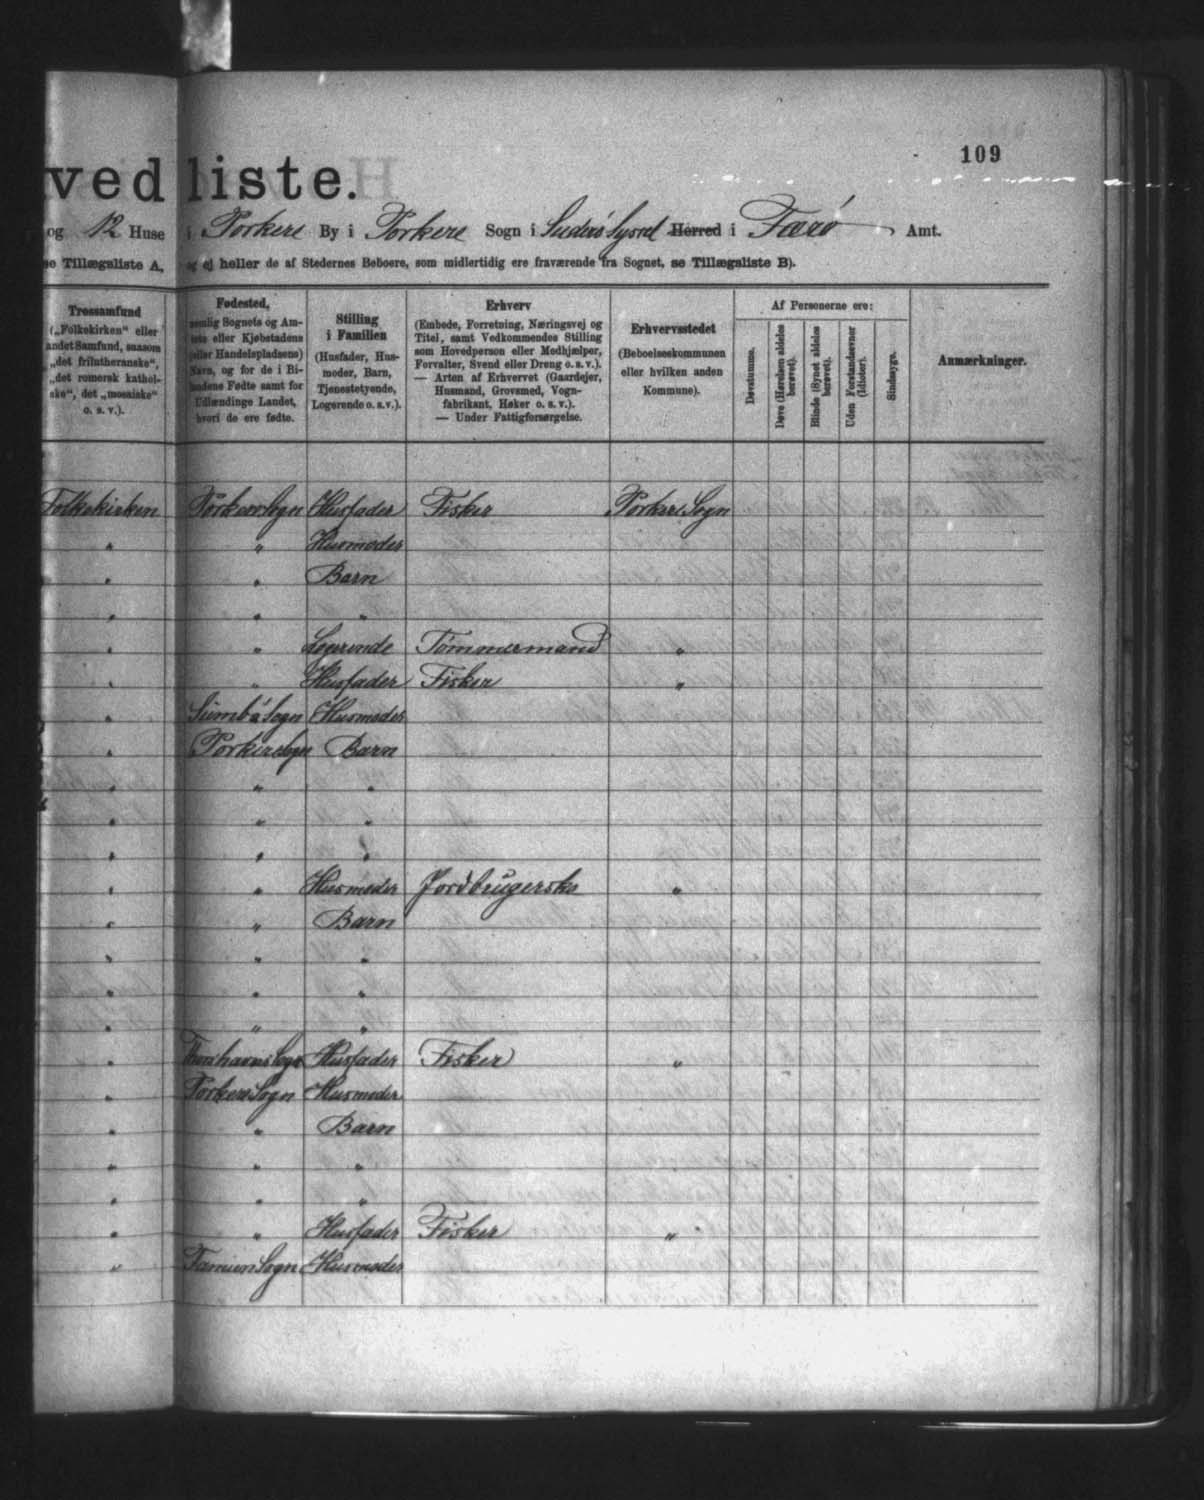 109
vedliste.
og 12 Huse i Porkere By i Porkere Sogn i Suderø Syssel Herred i Færø Amt.
se Tillægsliste A, og ej heller de af Stedernes Beboere, som midlertidig ere fraværende fra Sognet, se Tillægsliste B).
Trossamfund
(„Folkekirken“ eller
andet Samfund, saasom
„det frilutheranske“,
„det romersk kathol-
ske“, det „mosaiske“
o. s. v.).
Fødested,
nemlig Sognets og Am-
tets eller Kjøbstadens
(eller Handelspladsens)
Navn, og for de i Bi-
landene Fødte samt for
Udlændinge Landet,
hvori de ere fødte.
Stilling
i Familien
(Husfader, Hus-
moder, Barn,
Tjenestetyende,
Logerende o. s. v.).
Erhverv
(Embede, Forretning, Næringsvej og
Titel, samt Vedkommendes Stilling
som Hovedperson eller Medhjælper,
Forvalter, Svend eller Dreng o. s. v.).
— Arten af Erhvervet (Gaardejer,
Husmand, Grovsmed, Vogn-
fabrikant, Høker o. s. v.).
— Under Fattigforsørgelse.
Erhvervsstedet
(Beboelseskommunen
eller hvilken anden
Kommune).
Af Personerne ere:
Døvstumme.
Døve (Hørelsen aldeles
berøvet).
Blinde (Synet aldeles
berøvet).
Uden Forstandsevner
(Idioter).
Sindssyge.
Anmærkninger.
Folkekirken Porkere Sogn Husfader Fisker Porkere Sogn
" " Husmoder
" " Barn
" " "
" " Logerende Tømmermand "
" " Husfader Fisker "
" Sumbø Sogn Husmoder
" Porkere Sogn Barn
" " "
" " "
" " "
" " Husmoder Jordbrugerske "
" " Barn
" " "
" " "
" " "
" Thorshavns Sogn Husfader Fisker "
" Porkere Sogn Husmoder
" " Barn
" " "
" " "
" " Husfader Fisker "
" Famien Sogn Husmoder